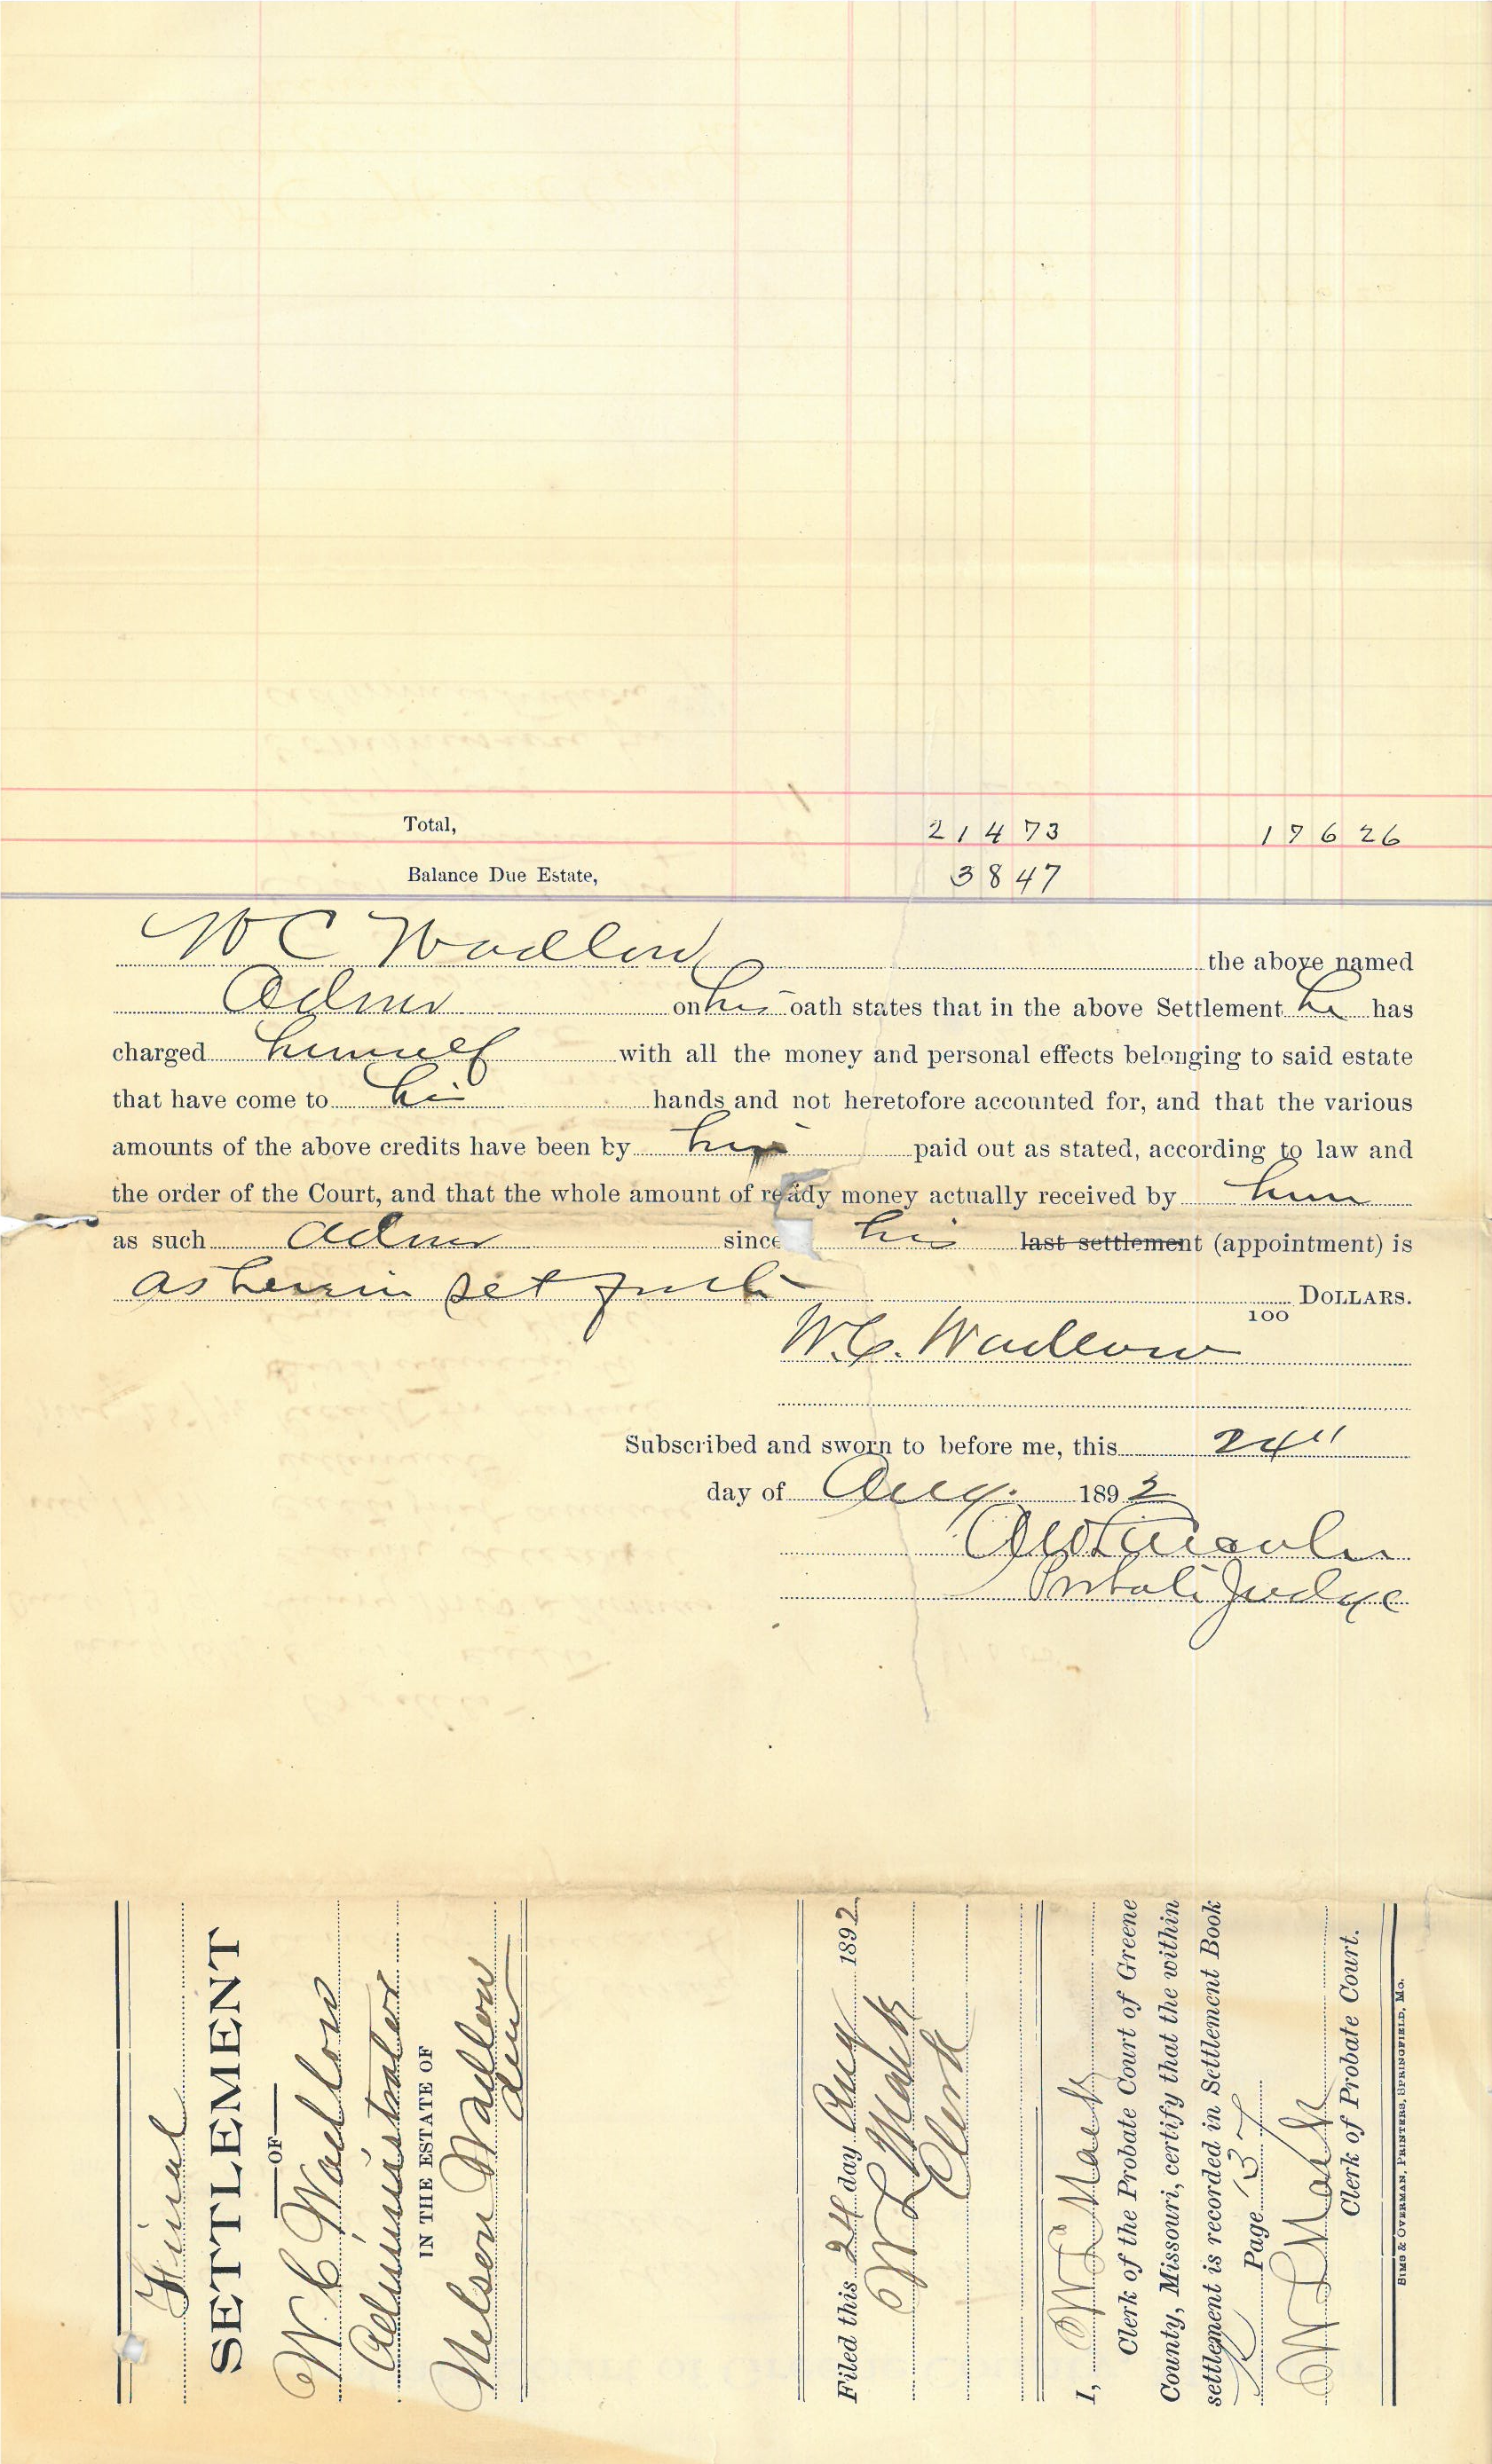 Total, 21473 17626
Balance Due Estate, 3847
W C Wadlow the above named
Admr on his oath states that in the above Settlement he has
charged himself with all the money and personal effects belonging to said estate
that have come to his hands and not heretofore accounted for, and that the various
amounts of the above credits have been by him paid out as stated, according to law and
the order of the Court, and that the whole amount of ready money actually received by him
as such Admr since his last settlement (appointment) is
as herein set forth DOLLARS.
100
W. C. Wadlow
Subscribed and sworn to before me, this 24"
day of Aug. 1892
Probate Judge
Final
SETTLEMENT
OF
W. C. Wadlow
Administrator
IN THE ESTATE OF
Nelson Wadlow
Filed this 24 day Aug 1892
W L Mack
Clerk
I, W L Mack
Clerk of the Probate Court of Greene
County, Missouri, certify that the within
settlement is recorded in Settlement Book
Page 137
W L Mack
Clerk of Probate Court.
SIMS & OVERMAN, PRINTERS, SPRINGFIELD, MO.